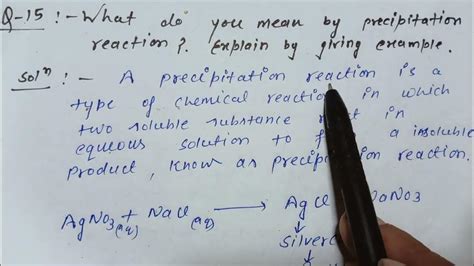 Q-15 :- What do you mean by precipitation
reaction? Explain by giving example.
Solⁿ :- A precipitation reaction is a
type of chemical reaction in which
two soluble substance in
equeous solution to a insoluble
product, know as precipitation reaction.
AgNO3(aq) + NaCl(aq) → AgCl NaNO3
Silver